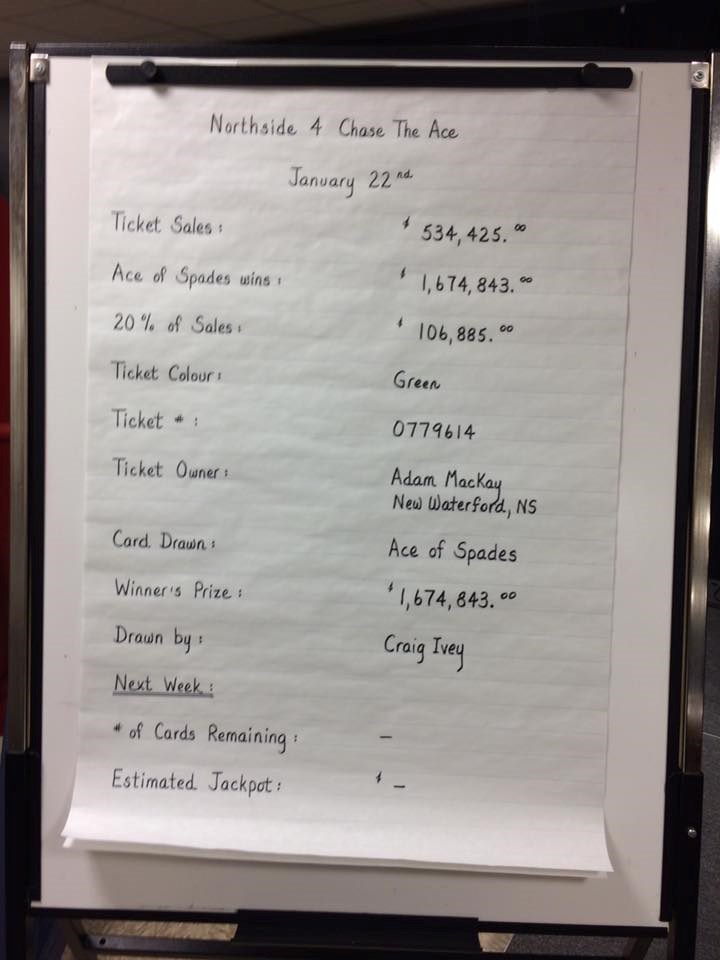 Northside 4 Chase The Ace
January 22nd
Ticket Sales: $ 534,425.00
Ace of Spades wins: $ 1,674,843.00
20% of Sales: $ 106,885.00
Ticket Colour: Green
Ticket #: 0779614
Ticket Owner: Adam MacKay
New Waterford, NS
Card Drawn: Ace of Spades
Winner's Prize: $1,674,843.00
Drawn by: Craig Ivey
Next Week:
# of Cards Remaining: –
Estimated Jackpot: $ –